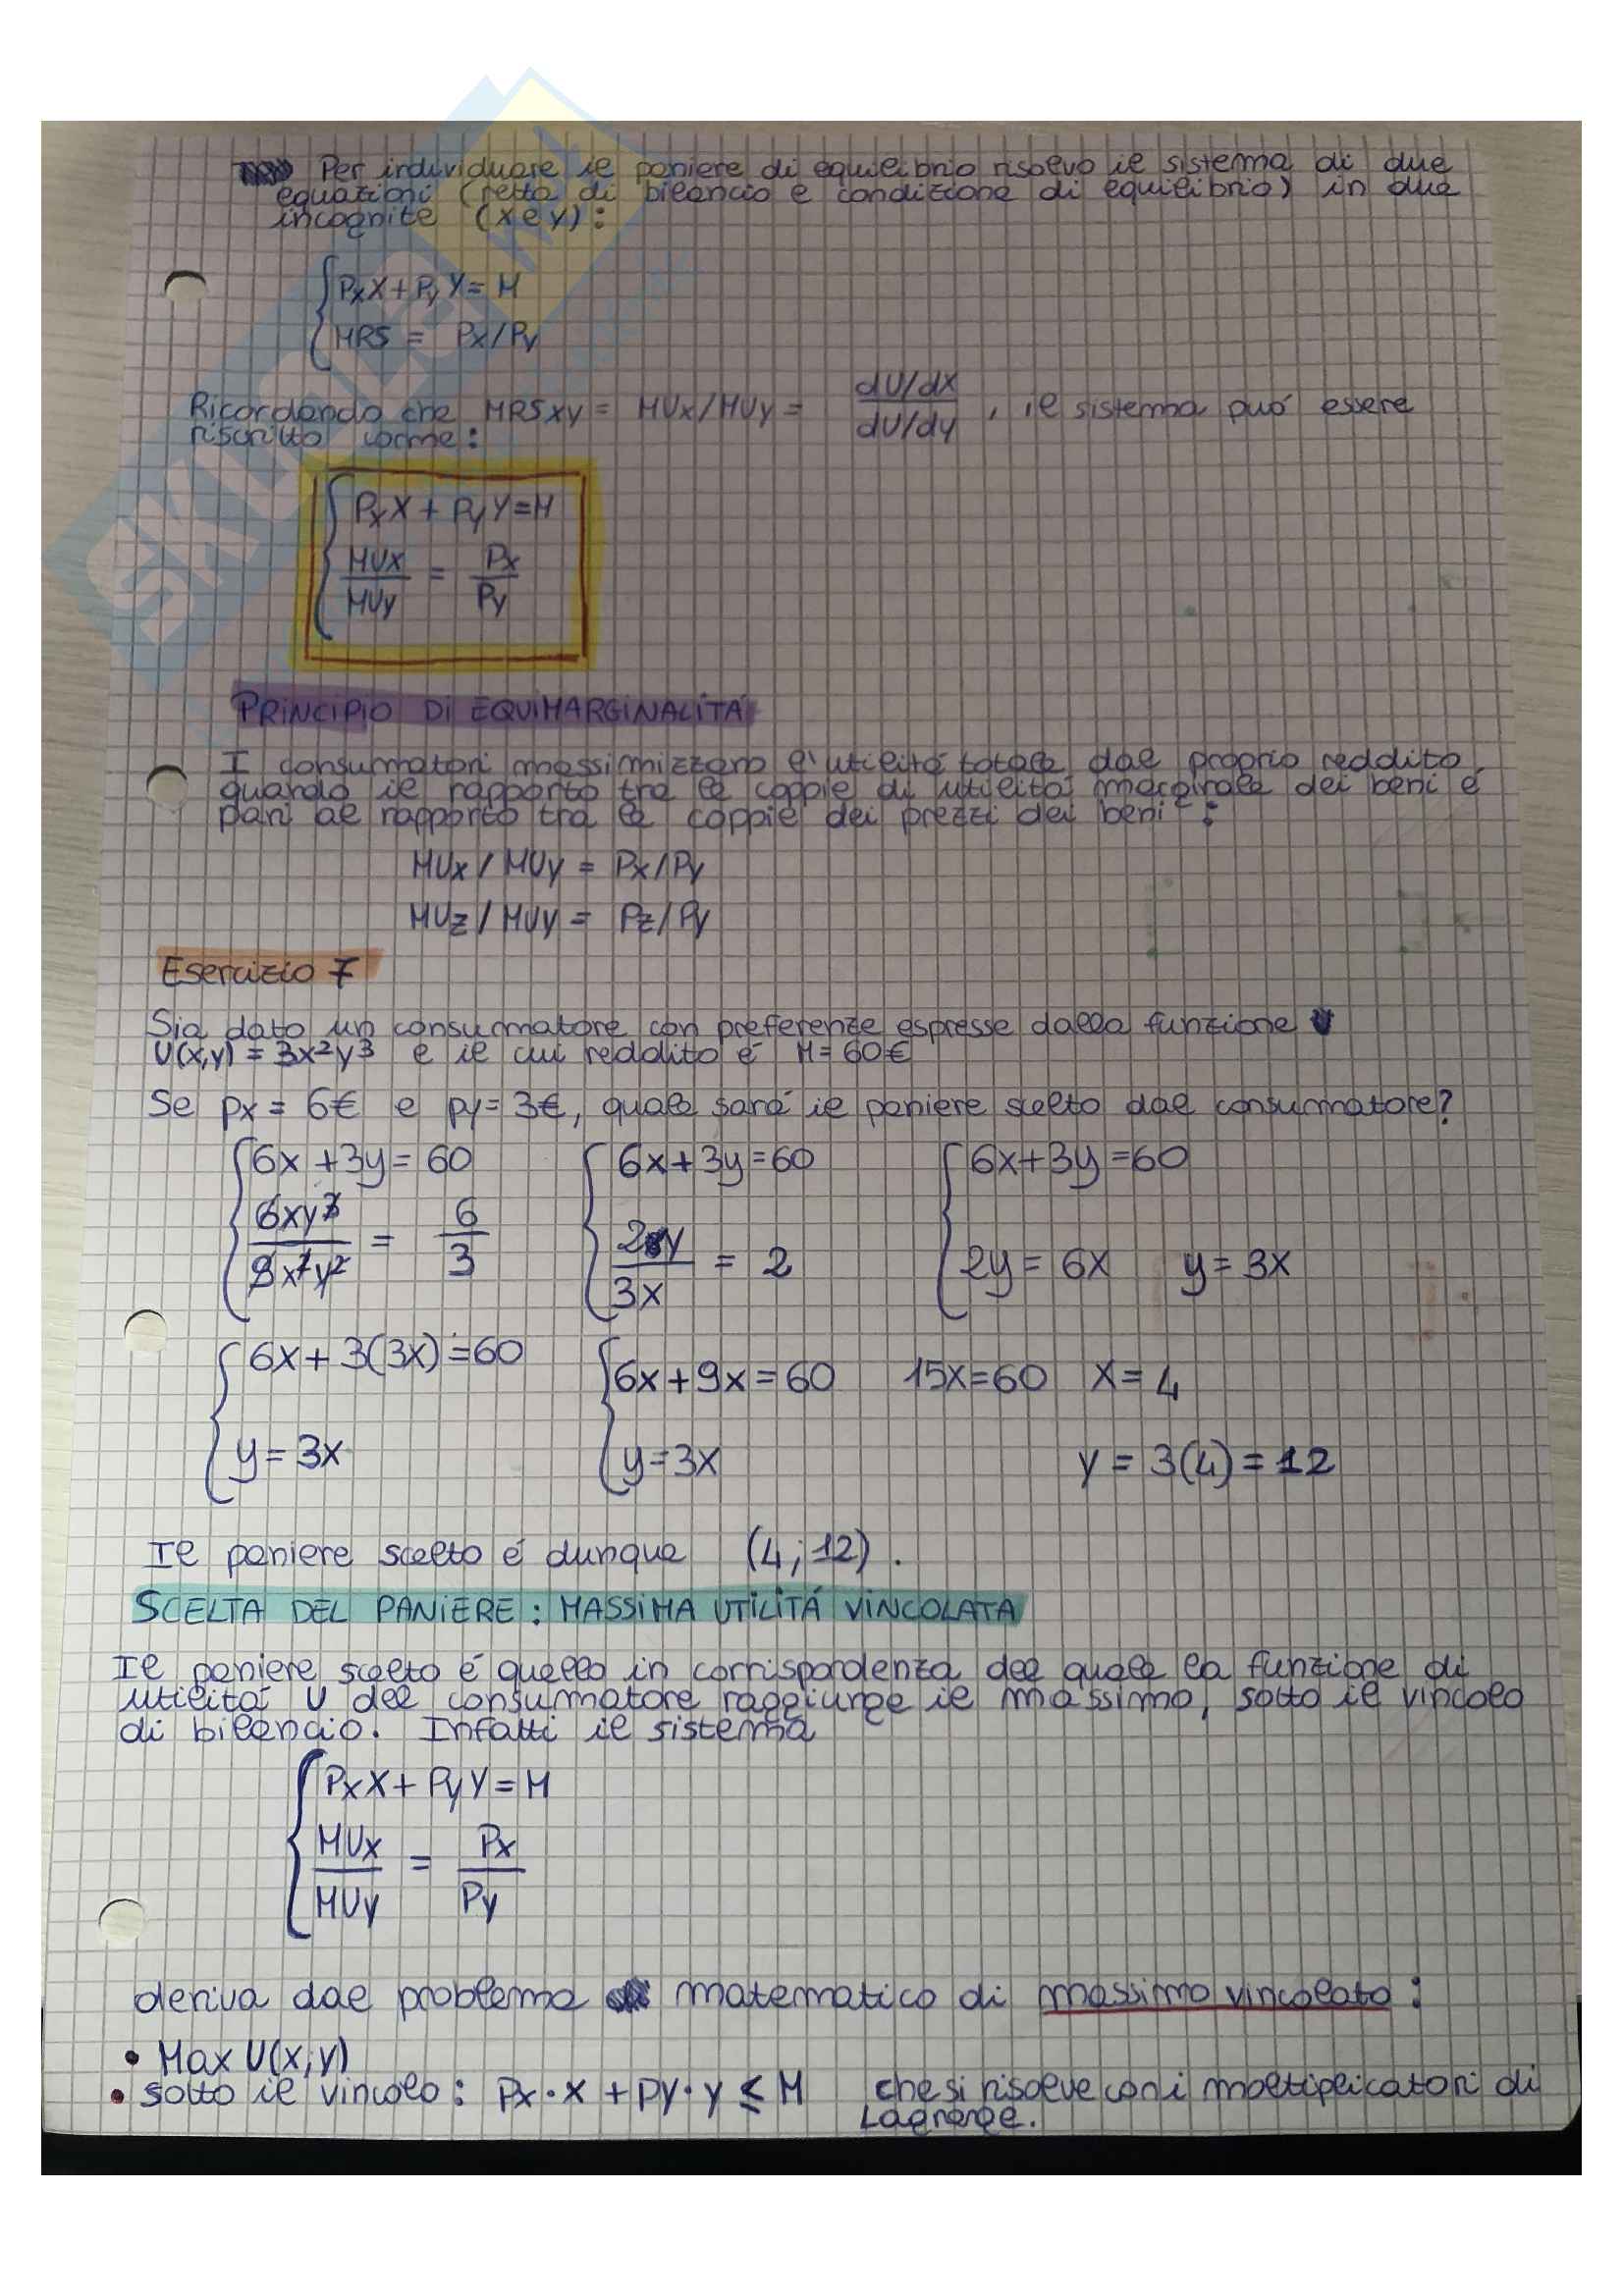 Per individuare il paniere di equilibrio risolvo il sistema di due
equazioni (retta di bilancio e condizione di equilibrio) in due
incognite (x e y):
{ PxX + PyY = M
{ MRS = Px/Py
Ricordando che MRSxy = MUx/MUy = dU/dX / dU/dy , il sistema può essere
riscritto come:
{ PxX + PyY = M
{ MUx/MUy = Px/Py
PRINCIPIO DI EQUIMARGINALITÁ
I consumatori massimizzano l'utilità totale dal proprio reddito
quando il rapporto tra le coppie di utilità marginale dei beni é
pari al rapporto tra le coppie dei prezzi dei beni:
MUx / MUy = Px/Py
MUz / MUy = Pz/Py
Esercizio 7
Sia dato un consumatore con preferenze espresse dalla funzione
U(x,y) = 3x²y³ e il cui reddito é M = 60€
Se px = 6€ e py = 3€, quale sará il paniere scelto dal consumatore?
{ 6x + 3y = 60 { 6x + 3y = 60 { 6x + 3y = 60
{ 6xy³/9x²y² = 6/3 { 2y/3x = 2 { 2y = 6x y = 3x
{ 6x + 3(3x) = 60 { 6x + 9x = 60 15x = 60 x = 4
{ y = 3x { y = 3x y = 3(4) = 12
Il paniere scelto é dunque (4; 12).
SCELTA DEL PANIERE: MASSIMA UTILITÁ VINCOLATA
Il paniere scelto é quello in corrispondenza del quale la funzione di
utilitá U del consumatore raggiunge il massimo, sotto il vincolo
di bilancio. Infatti il sistema
{ PxX + PyY = M
{ MUx/MUy = Px/Py
deriva dal problema matematico di massimo vincolato:
• Max U(x;y)
• sotto il vincolo: Px·x + py·y ≤ M che si risolve con i moltiplicatori di
Lagrange.